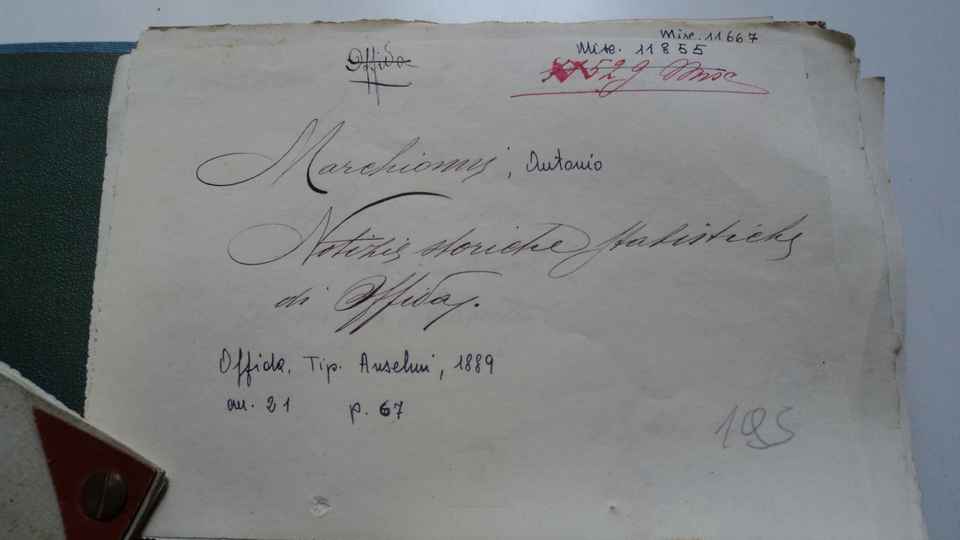 Offida
Misc. 11667
Misc. 11855
529 Misc
Marchionni, Antonio
Notizie storiche statistiche
di Offida.
Offida, Tip. Anselmi, 1889
cm. 21 p. 67
195